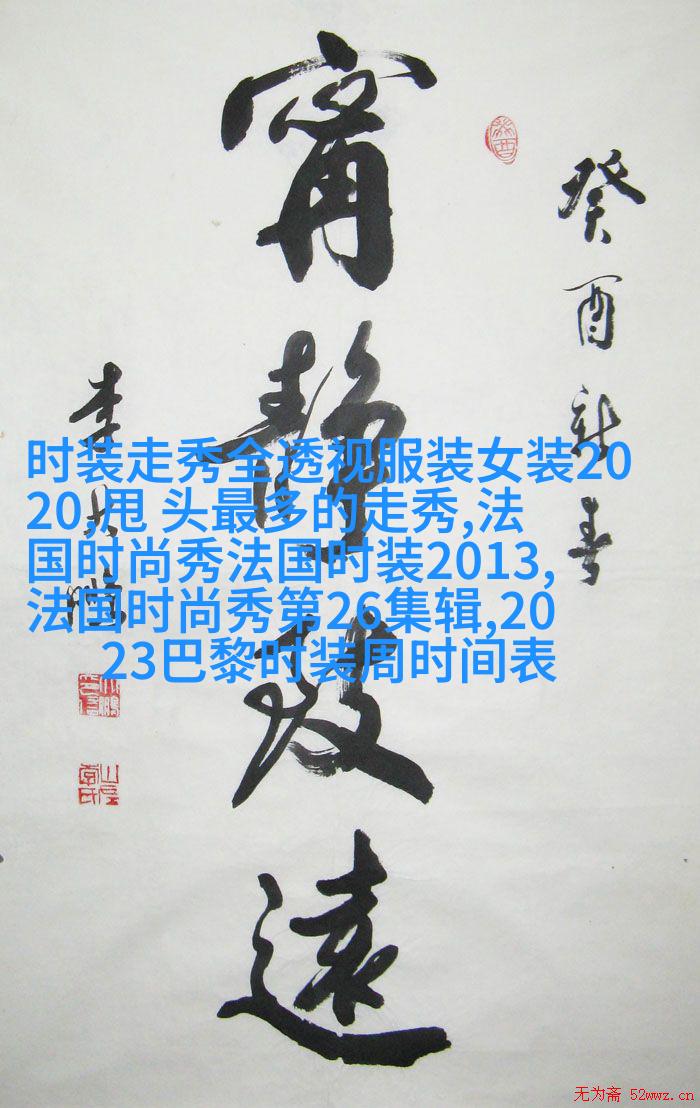 甯靜致遠
癸酉新春
李大
时装走秀全透视服装女装20
20,甩 头最多的走秀,法
国时尚秀法国时装2013,
法国时尚秀第26集辑,20
23巴黎时装周时间表
无为斋 52wwz.cn